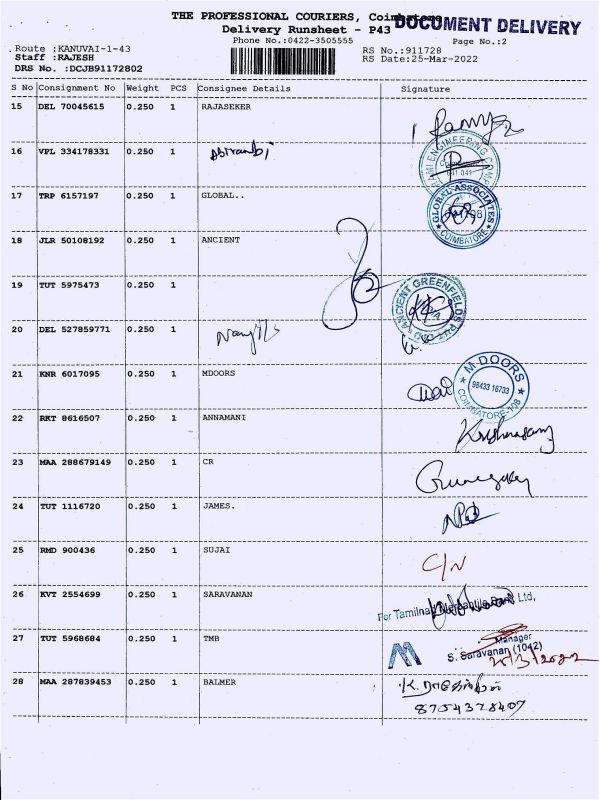 THE PROFESSIONAL COURIERS, Coimbatore
DOCUMENT DELIVERY
Delivery Runsheet - P43
Phone No.:0422-3505555
Page No.:2
Route :KANUVAI-1-43
RS No.:911728
Staff :RAJESH
RS Date:25-Mar-2022
DRS No. :DCJB91172802
S No Consignment No Weight PCS Consignee Details Signature
15 DEL 70045615 0.250 1 RAJASEKER
16 VPL 334178331 0.250 1
ENGINEERING
17 TRP 6157197 0.250 1 GLOBAL..
GLOBAL ASSOCIATES
COIMBATORE
18 JLR 50108192 0.250 1 ANCIENT
19 TUT 5975473 0.250 1
ANCIENT GREENFIELDS
20 DEL 527859771 0.250 1
21 KNR 6017095 0.250 1 MDOORS
M-DOORS
98433 16733
COIMBATORE-108
22 RKT 8616507 0.250 1 ANNAMANI
23 MAA 288679149 0.250 1 CR
24 TUT 1116720 0.250 1 JAMES.
25 RMD 900436 0.250 1 SUJAI
C/N
26 KVT 2554699 0.250 1 SARAVANAN
For Tamilnad Mercantile Bank Ltd,
27 TUT 5968684 0.250 1 TMB
Manager
S. Saravanan (1042)
28 MAA 287839453 0.250 1 BALMER
8754378407